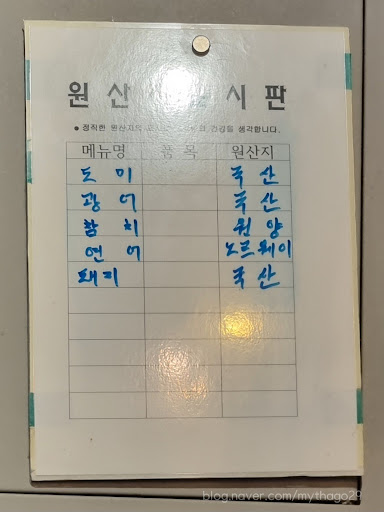 원 산 시 판
● 정직한 원산지의 건강을 생각합니다.
메뉴명 품 목 원산지
도 미 국 산
광 어 국 산
참 치 원 양
연 어 노르웨이
돼지 국 산
blog.naver.com/mythago29